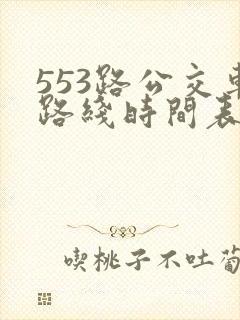 553路公交車
路綫時間表
喫桃子不吐葡